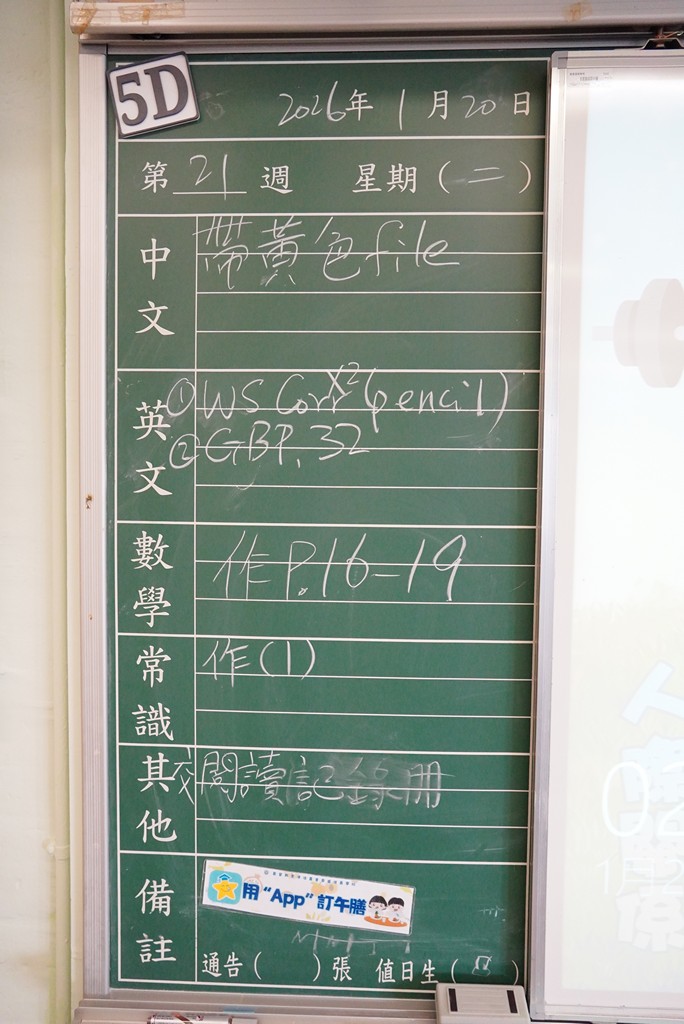 5D
2026年 1月20日
第 21 週 星期(二)
中文
帶黃色file
英文
① WS Corr X2 (pencil)
② GB P. 32
數學
作 P.16-19
常識
作(1)
其他
交閱讀記錄冊
備註
用“App”訂午膳
通告( )張 值日生( )
02
1月2